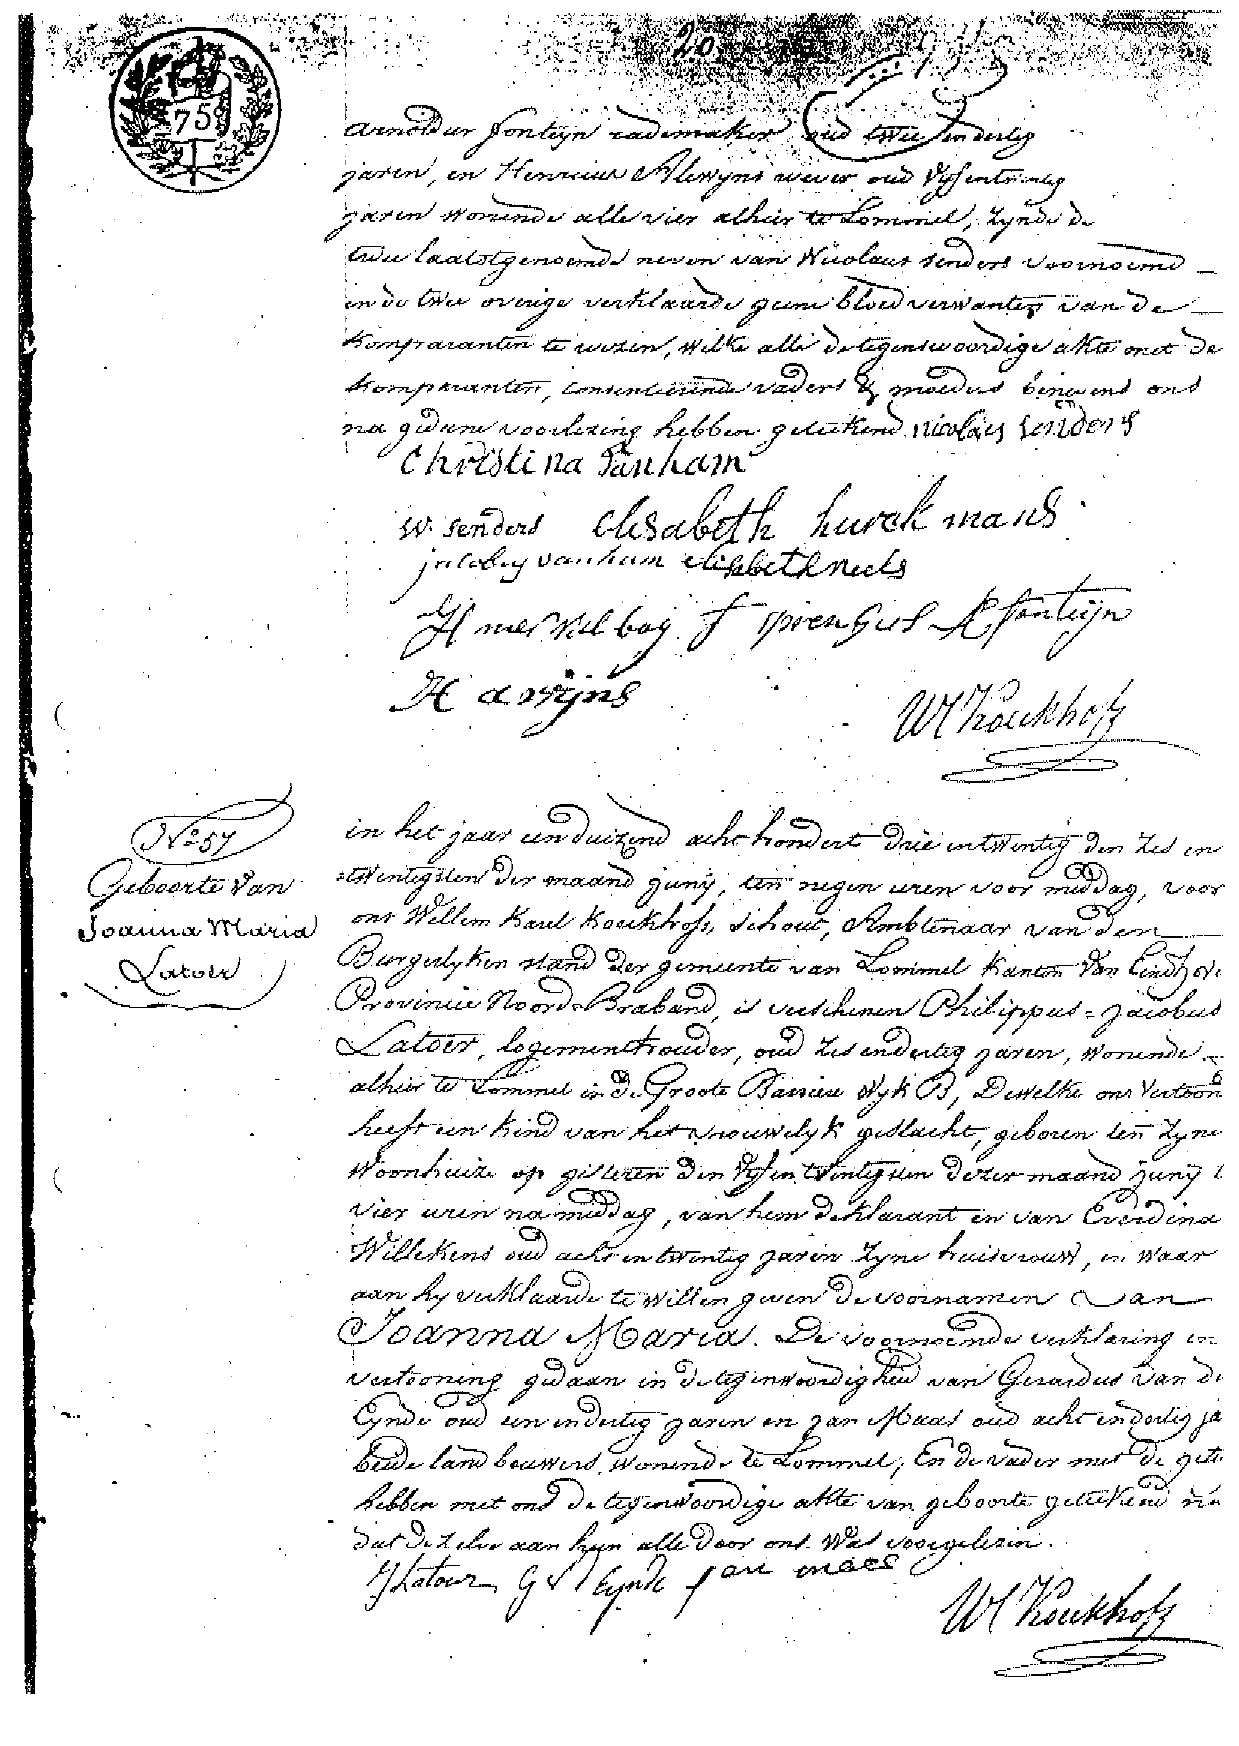 20
75
arnoldus fonteyn rademaker oud twee en dertig
jaren, en Henricus Alewyns wever oud Vyfentwintig
jaren wonende alle vier alhier te Lommel, zynde de
twee laatstgenoemde neven van Nicolaus Senders voornoemd
en de twee overige verklaarde geene bloedverwanten van de
Komparanten te wezen, welke alle de tegenswoordige akte met de
Komparanten, consenteerende vaders & moeders benevens ons
na gedane voorlezing hebben geteekend. nicolaes senders
Christina vanham
W. senders elisabeth hurckmans
jacobus vanham elisbeth neels
H mer f sprengers A fonteijn
H awijns
W K Kouckhofs
No 57
Geboorte van
Joanna Maria
Latoir
in het jaar een duizend acht hondert drie entwintig den zes en
twintigsten der maand junij, ten negen uren voor middag, voor
ons Willem Karel Kouckhofs, Schout, Ambtenaar van den
Burgerlyken stand der gemeente van Lommel Kanton van Eindhove
Provincie Noord-Braband, is verschenen Philippus=jacobus
Latoir, logementhouder, oud zes endertig jaren, wonende
alhier te Lommel in de Groote Barriere Wyk B, Dewelke ons vertoond
heeft een kind van het vrouwelyk geslacht, geboren ten zyne
Woonhuize op gisteren den Vyfentwintigsten dezer maand junij
vier uren namiddag, van hem deklarant en van Everdina
Willekens oud acht entwintig jaren zyne huisvrouw, en waar
aan hy verklaarde te willen geven de voornamen van
Joanna Maria. De voornoemde verklaring en
vertooning gedaan in de tegenwoordigheid van Gerardus van de
Eynde oud een en dertig jaren en jan Maas oud acht en dertig ja
beide landbouwers, wonende te Lommel, En de vader met de gete
hebben met ons de tegenwoordige akte van geboorte geteekend na
dat dezelve aan hun alle door ons was voorgelezen.
PJ Latour G V D Eynde jan maes
W K Kouckhofs